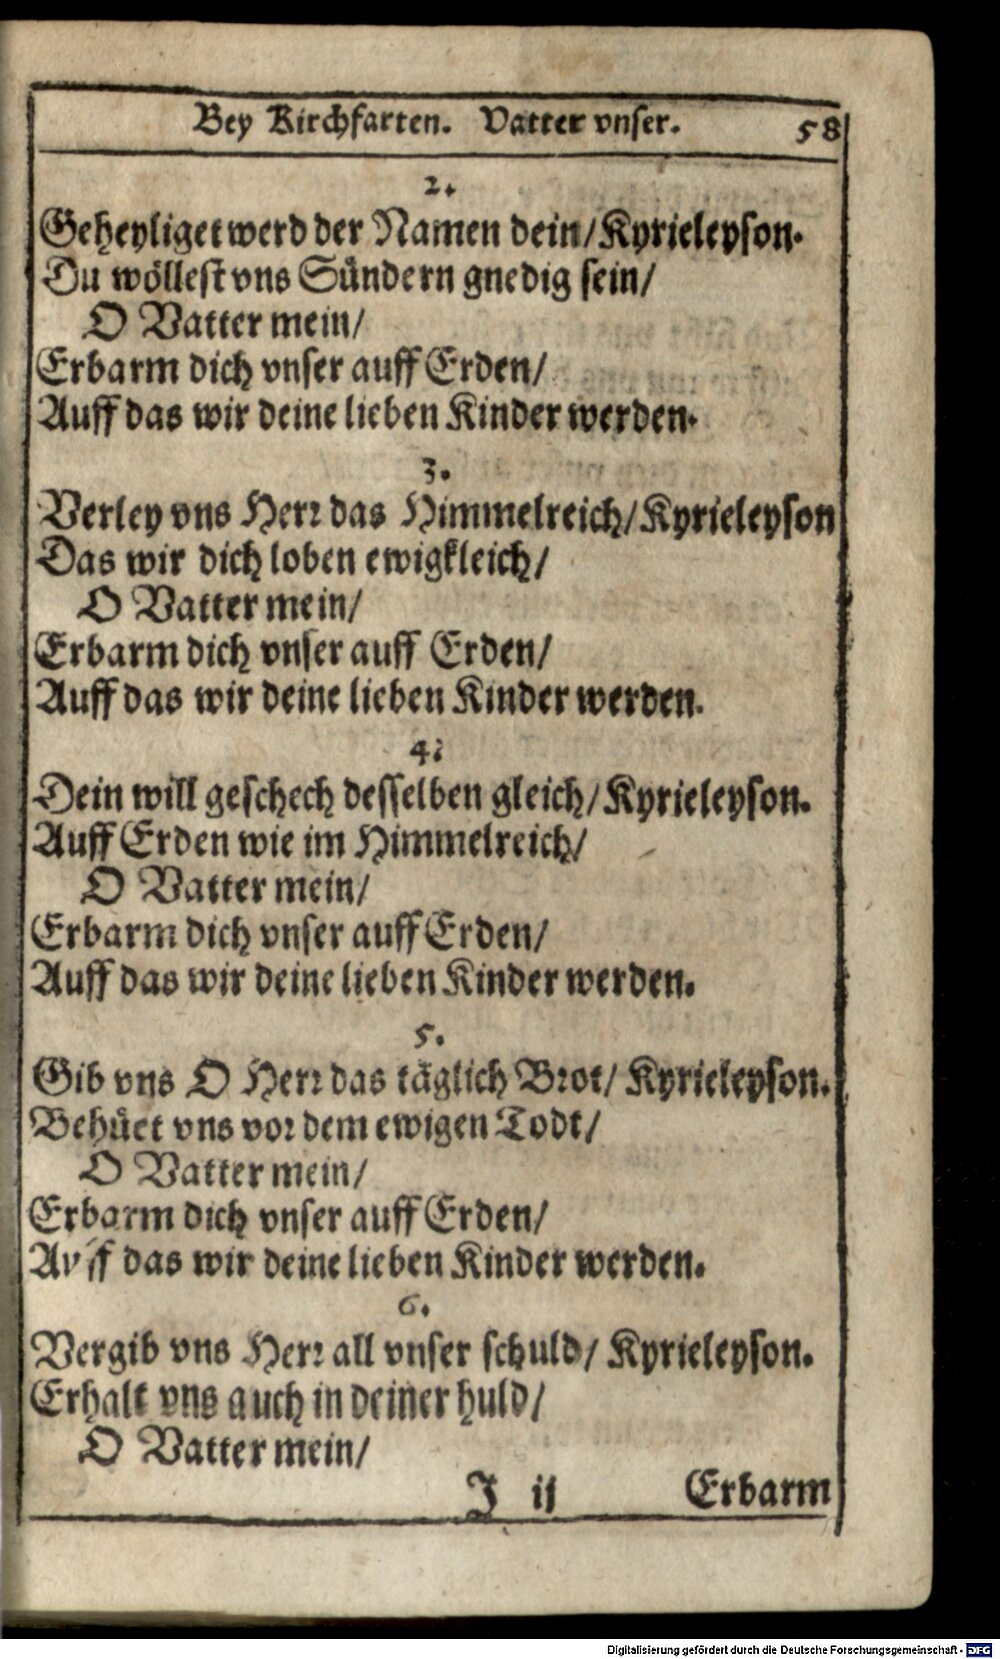 Bey Kirchfarten. Vatter vnser. 58
2.
Geheyliget werd der Namen dein/ Kyrieleyson.
Du wöllest vns Sündern gnedig sein/
O Vatter mein/
Erbarm dich vnser auff Erden/
Auff das wir deine lieben Kinder werden.
3.
Verley vns Herr das Himmelreich/ Kyrieleyson
Das wir dich loben ewigkleich/
O Vatter mein/
Erbarm dich vnser auff Erden/
Auff das wir deine lieben Kinder werden.
4.
Dein will geschech desselben gleich/ Kyrieleyson.
Auff Erden wie im Himmelreich/
O Vatter mein/
Erbarm dich vnser auff Erden/
Auff das wir deine lieben Kinder werden.
5.
Gib vns O Herr das täglich Brot/ Kyrieleyson.
Behüet vns vor dem ewigen Todt/
O Vatter mein/
Erbarm dich vnser auff Erden/
Auff das wir deine lieben Kinder werden.
6.
Vergib vns Herr all vnser schuld/ Kyrieleyson.
Erhalt vns auch in deiner huld/
O Vatter mein/
J ij Erbarm
Digitalisierung gefördert durch die Deutsche Forschungsgemeinschaft - DFG